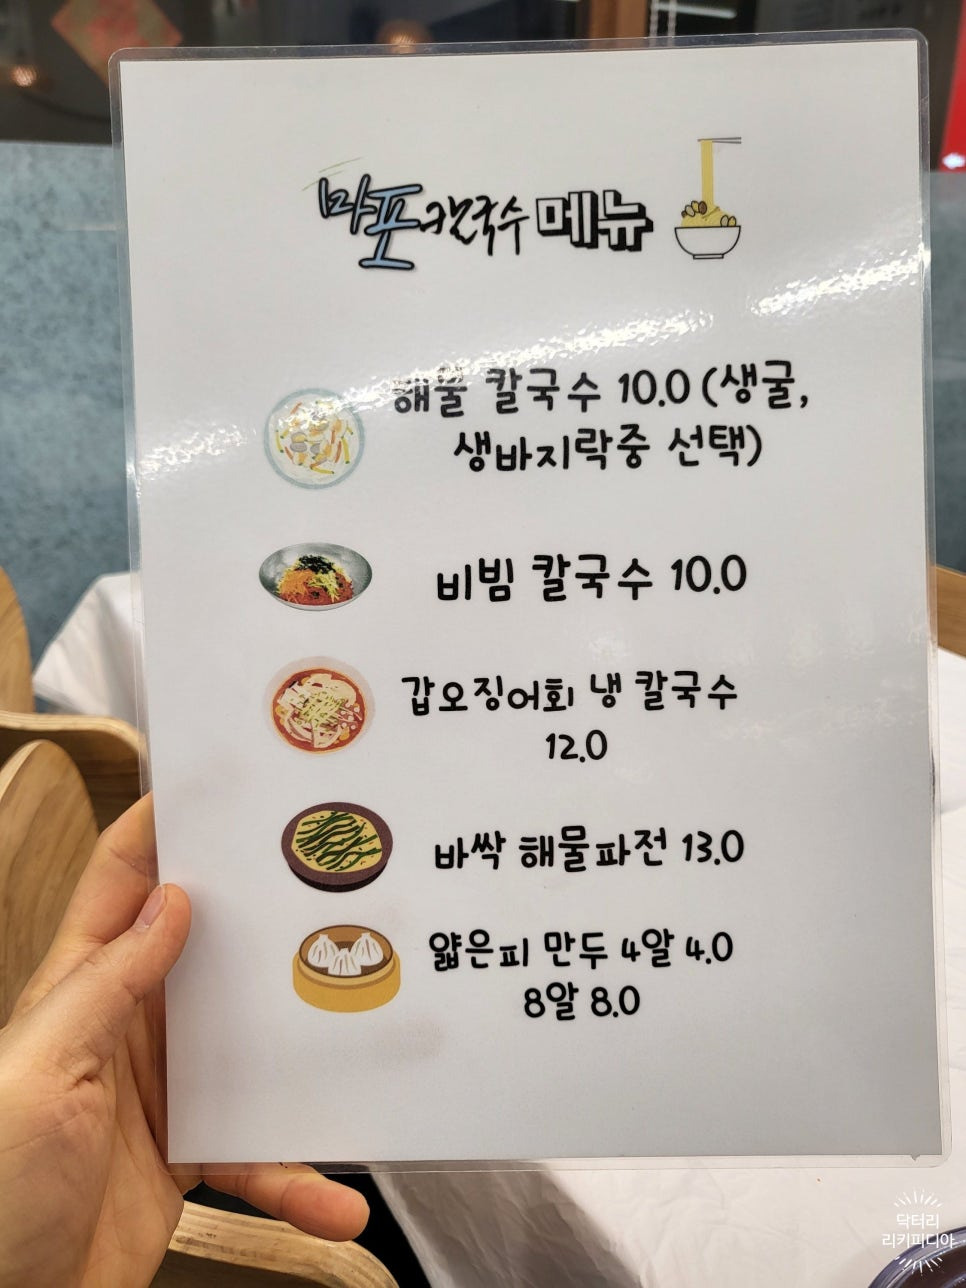 마포칼국수 메뉴
해물 칼국수 10.0 (생굴,
생바지락중 선택)
비빔 칼국수 10.0
갑오징어회 냉 칼국수
12.0
바싹 해물파전 13.0
얇은피 만두 4알 4.0
8알 8.0
닥터리
리키피디아